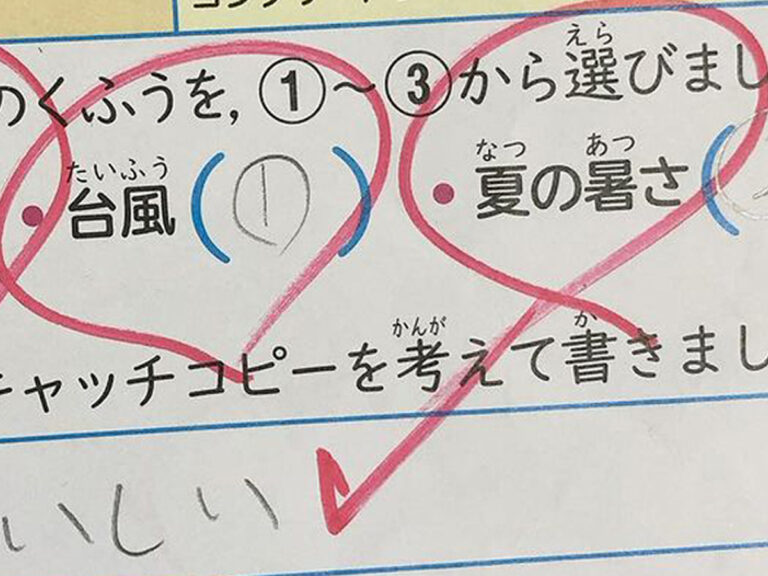 のくふうを,①～③から選びまし
えら
たいふう
台風(①)
なつ あつ
・夏の暑さ(
キャッチコピーを考えて書きまし
かんが か
いしい